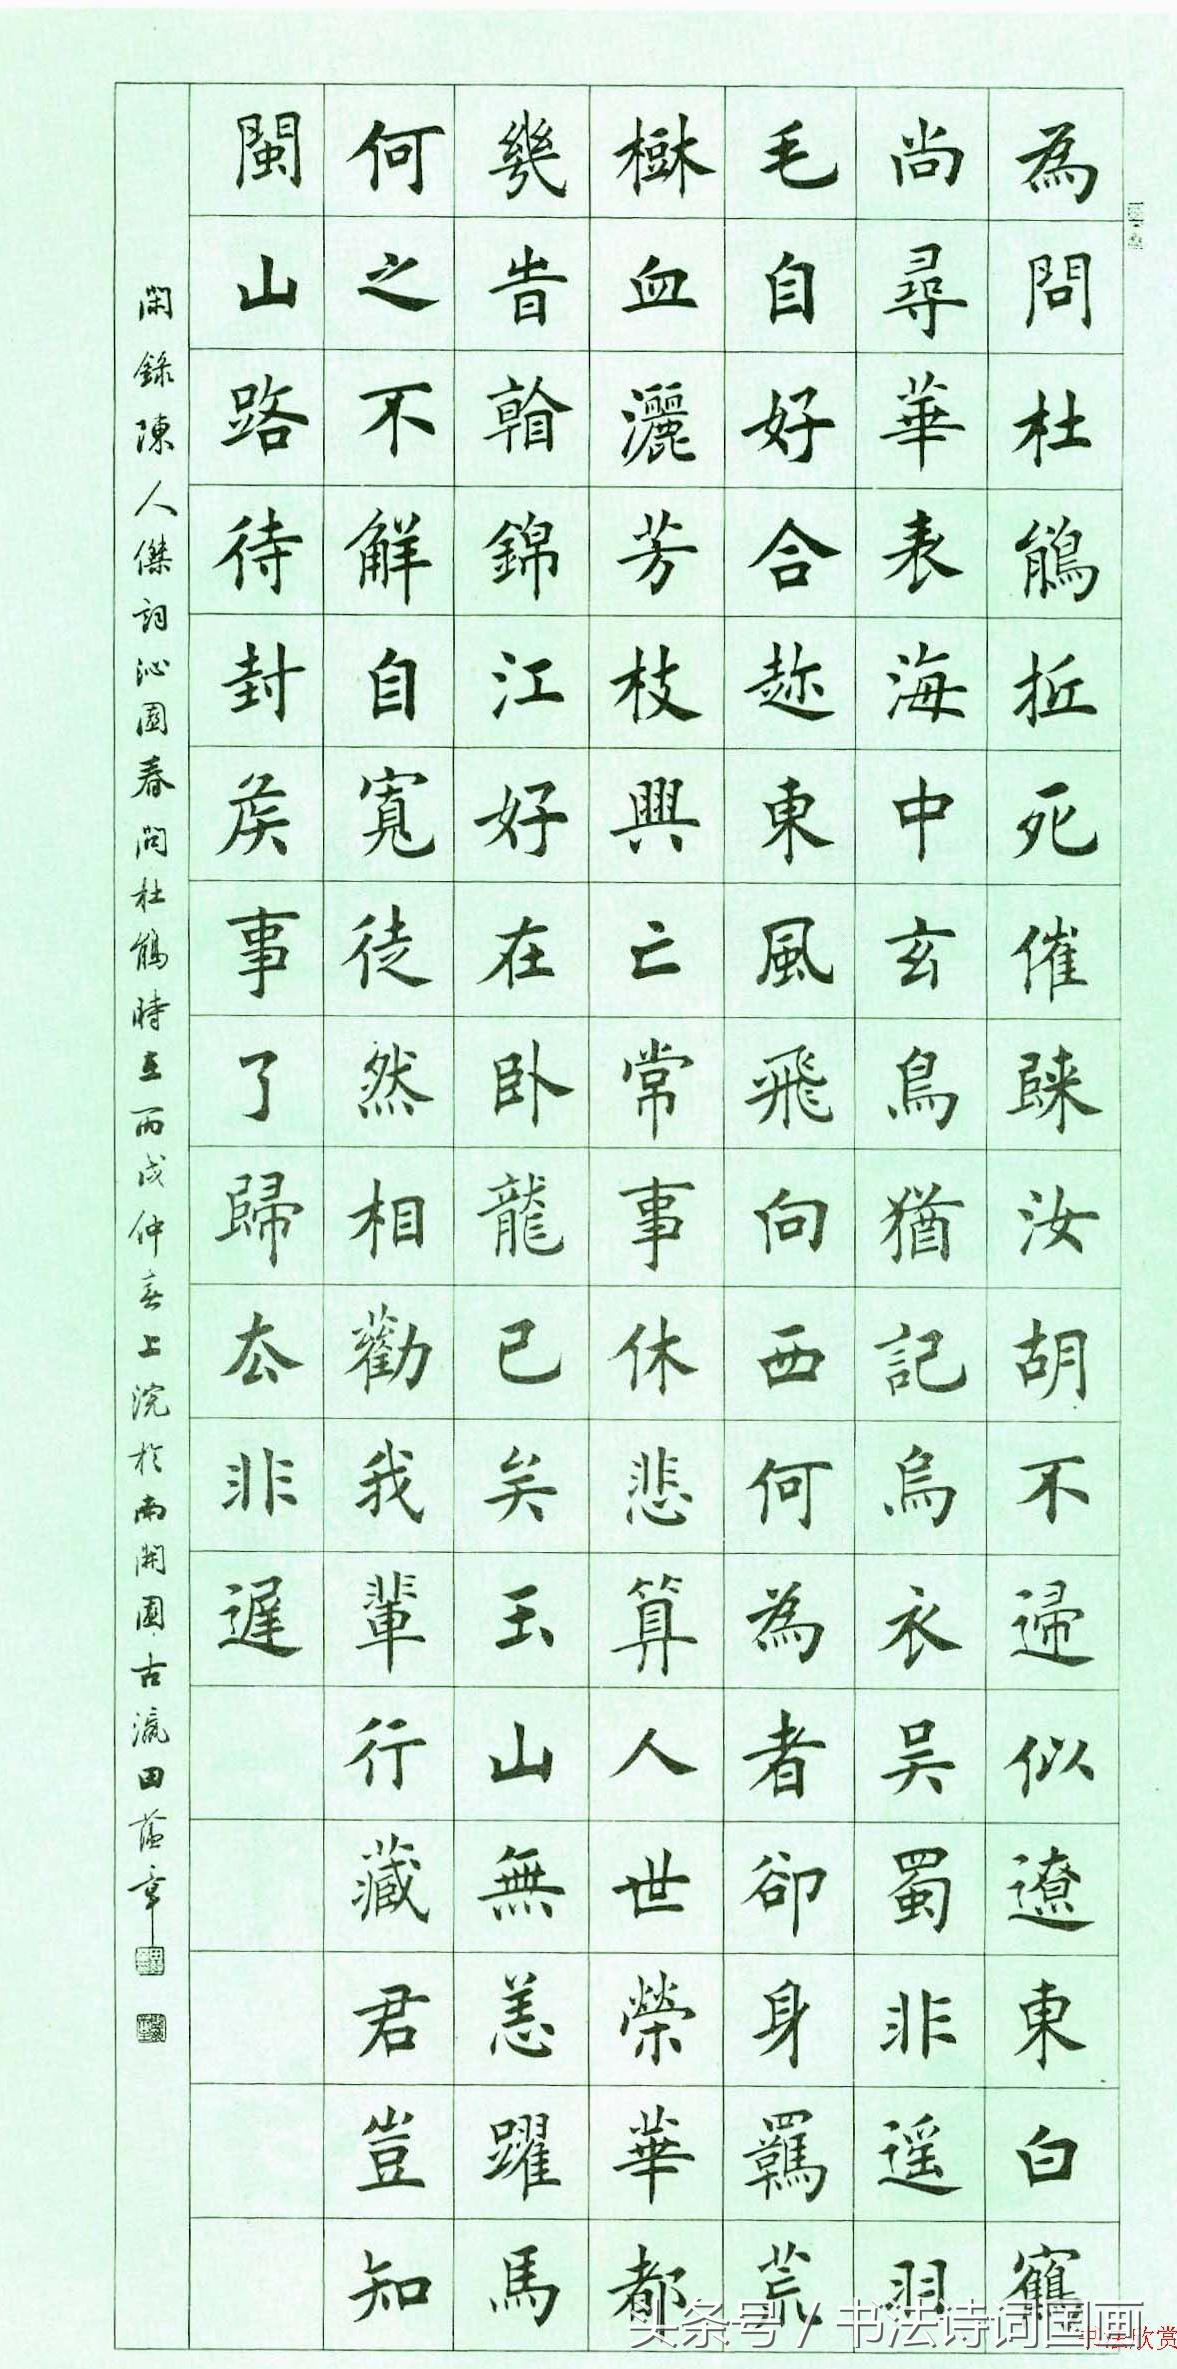 為問杜鵑抵死催歸汝胡不歸似遼東白鶴
尚尋華表海中玄鳥猶記烏衣吴蜀非遥羽
毛自好合趂東風飛向西何為者卻身羈荒
樹血灑芳枝興亡常事休悲算人世榮華都
幾旹看錦江好在卧龍已矣玉山無恙躍馬
何之不解自寬徒然相勸我輩行藏君豈知
閩山路待封侯事了歸去非遲
閑錄陳人傑詞沁園春問杜鵑時在丙戌仲春上浣於南開園古瀛田蘊章
头条号 / 书法诗词国画
书法欣赏